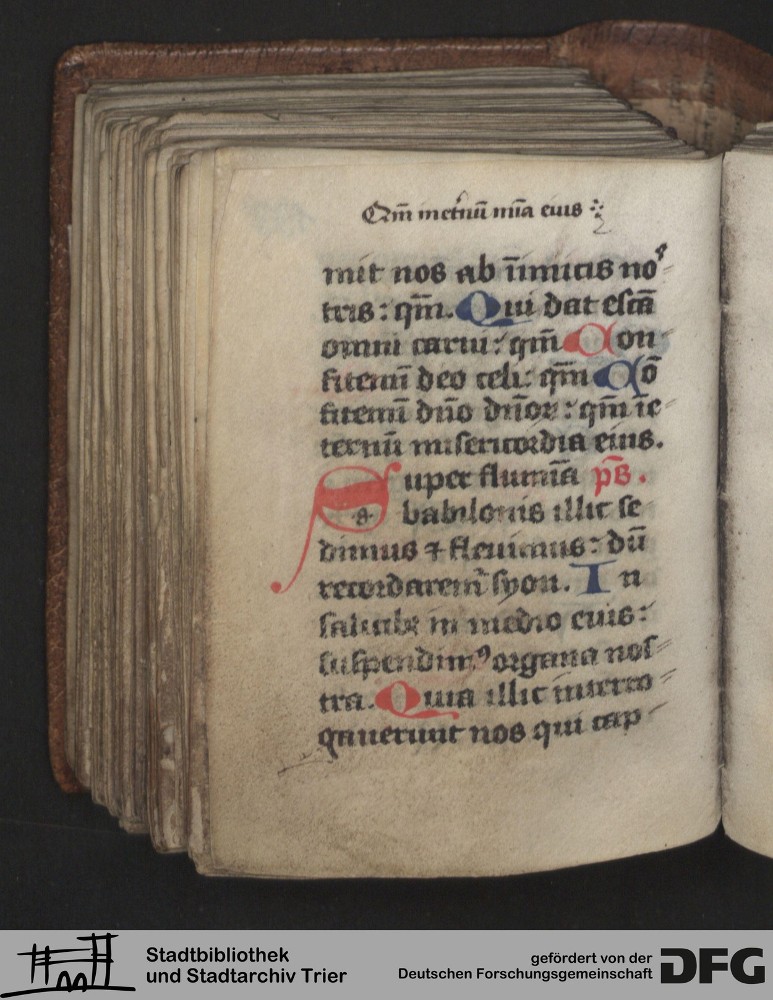 Qm̄ in et̾nū mīa eius
mit nos ab īnimicis no
tris : qm̄. Qui dat escā
omni carni : qm̄ Con
fitemī deo celi : qm̄ Cō
fitemī dn̄o dn̄oꝝ : qm̄ ī e
ternū misericordia eius.
Super flumīa ps̄.
babilonis illic se
dimus ⁊ fleuimus : dū
recordarem̃ syon. In
salicibꝫ in medio eius :
suspendimꝰ organa nos
tra. Quia illic interro
gauerunt nos qui cap
Stadtbibliothek
und Stadtarchiv Trier
gefördert von der
Deutschen Forschungsgemeinschaft
DFG